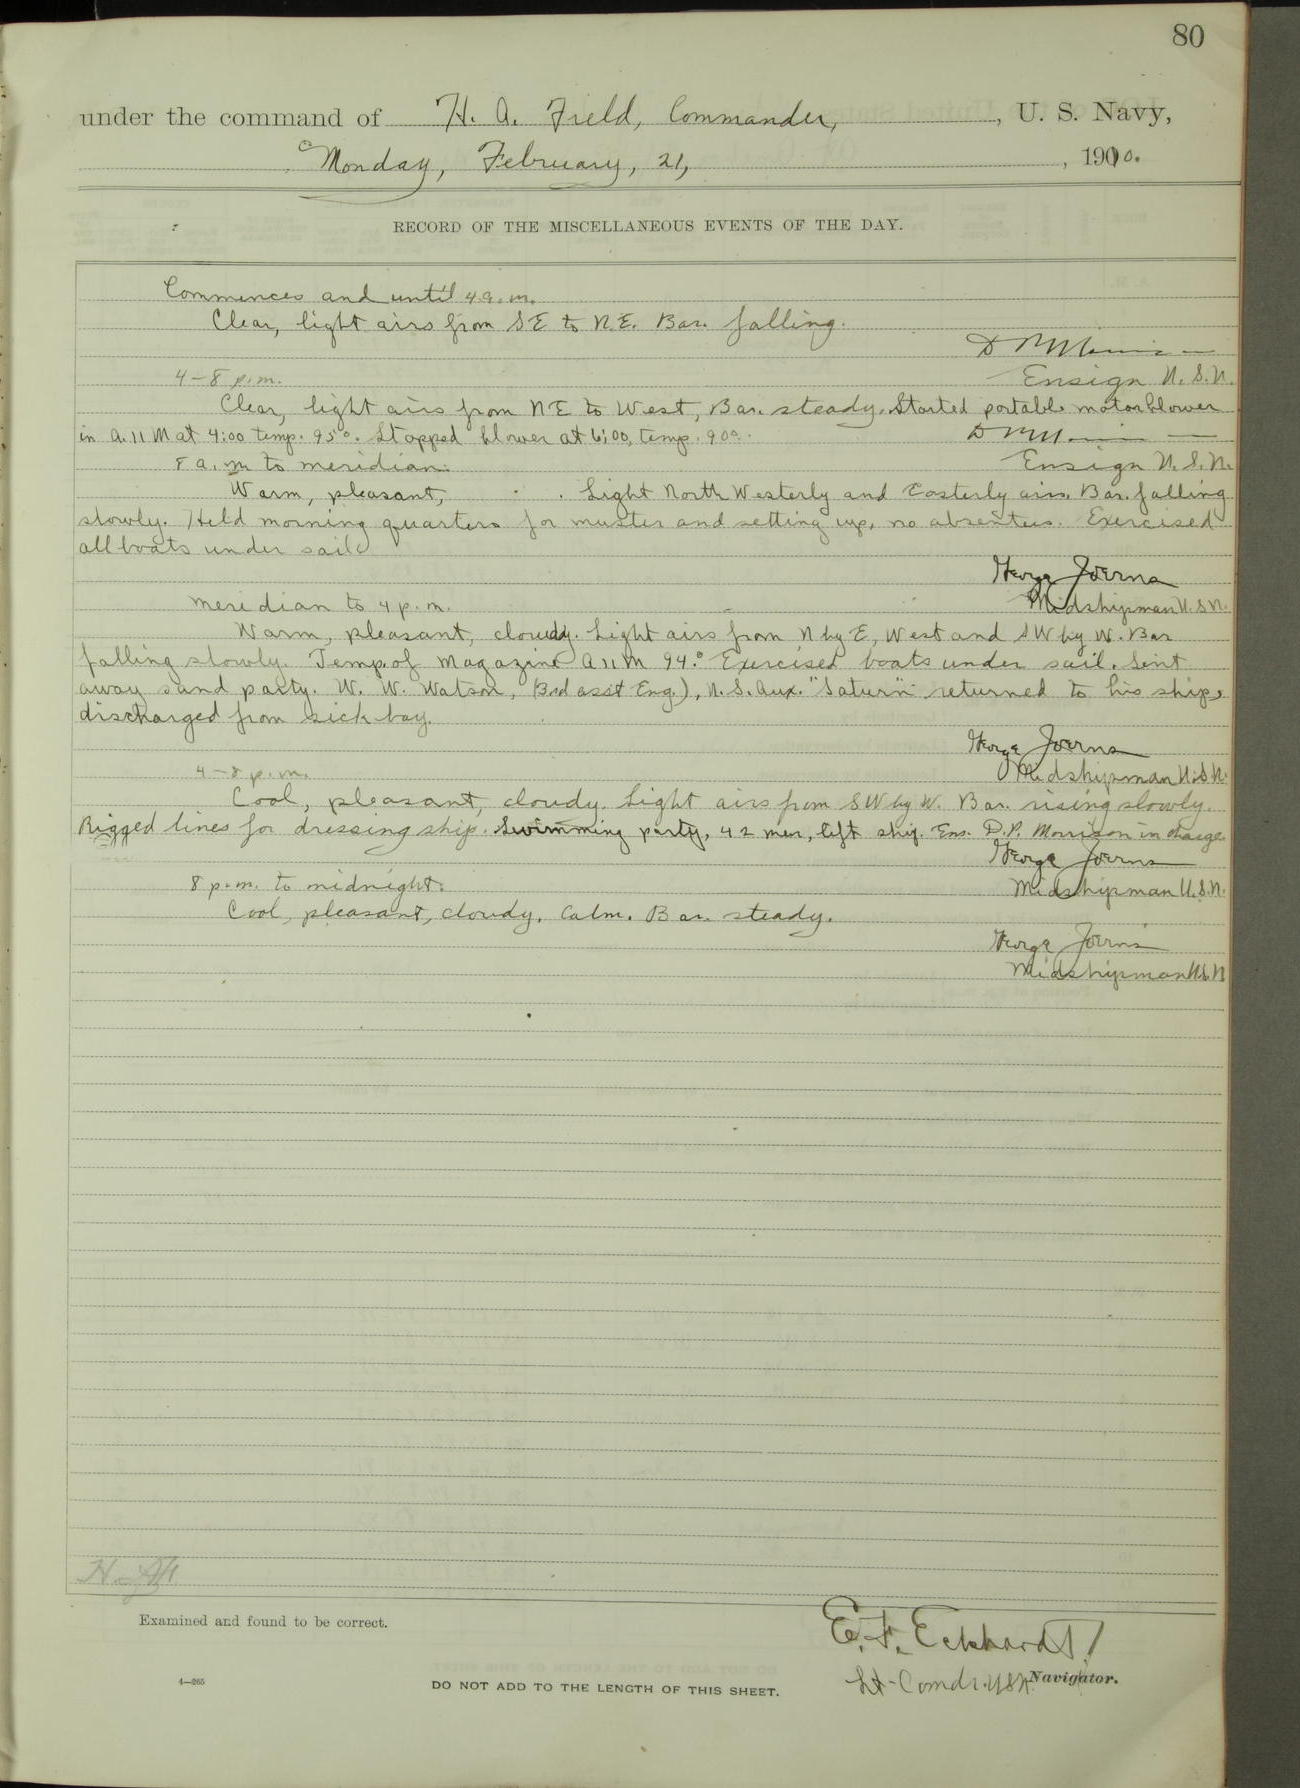 80
under the command of H. A. Field, Commander, , U. S. Navy,
Monday, February, 21, , 1910.
RECORD OF THE MISCELLANEOUS EVENTS OF THE DAY.
Commences and until 4 a.m.
Clear, light airs from SE to N.E. Bar. falling.
4-8 p.m.
Ensign U.S.N.
Clear, light airs from NE to West, Bar. steady. Started portable motor blower
in A.11 M at 4:00 temp. 95°. Stopped blower at 6:00, temp. 90°.
8 a.m to meridian.
Ensign U.S.N.
Warm, pleasant, Light North Westerly and Easterly airs. Bar. falling
slowly. Held morning quarters for muster and setting up, no absentees. Exercised
all boats under sail
George Joerns
meridian to 4 p.m.
Midshipman U.S.N.
Warm, pleasant, cloudy. Light airs from N by E, West and SW by W. Bar
falling slowly. Temp. of Magazine A 11 M 94.° Exercised boats under sail. Sent
away sand party. W. W. Watson, (3rd asst Eng.), N.S. Aux. "Saturn" returned to his ship,
discharged from sick bay.
George Joerns
4-8 p.m.
Midshipman U.S.N.
Cool, pleasant, cloudy. Light airs from SW by W. Bar. rising slowly.
Rigged lines for dressing ship. Swimming party, 42 men, left ship. Ens. D.P. Morrison in charge.
George Joerns
8 p.m. to midnight.
Midshipman U.S.N.
Cool, pleasant, cloudy. Calm. Bar. steady.
George Joerns
Midshipman U.S.N
Examined and found to be correct.
E. F. Eckhardt
Lt-Comdr. USN Navigator.
4—265
DO NOT ADD TO THE LENGTH OF THIS SHEET.